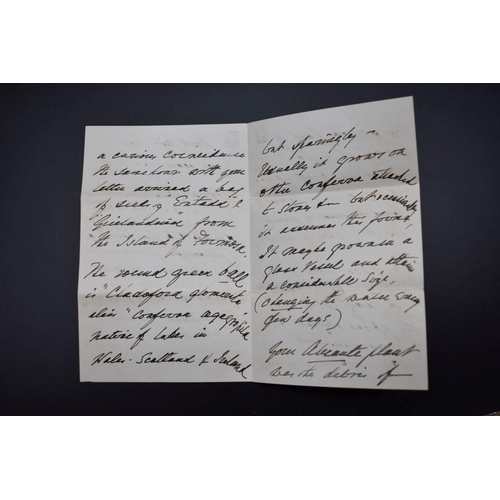 a curious coincidence
the same hour with your
letter arrived a bag
of seeds of Entada
from
the Island of Formosa.
The round green ball
is "Cladofora glomerata
alias "Conferva aegagropila
native of Lakes in
Wales - Scotland & Ireland
but sparingly -
Usually it grows on
other Conferva attached
to Stones &c but occasionally
it assumes this form,
It may be grown in a
glass Vessel and attain
a considerable Size,
(changing the water every
few days)
Your Alicante plant
was the debris of